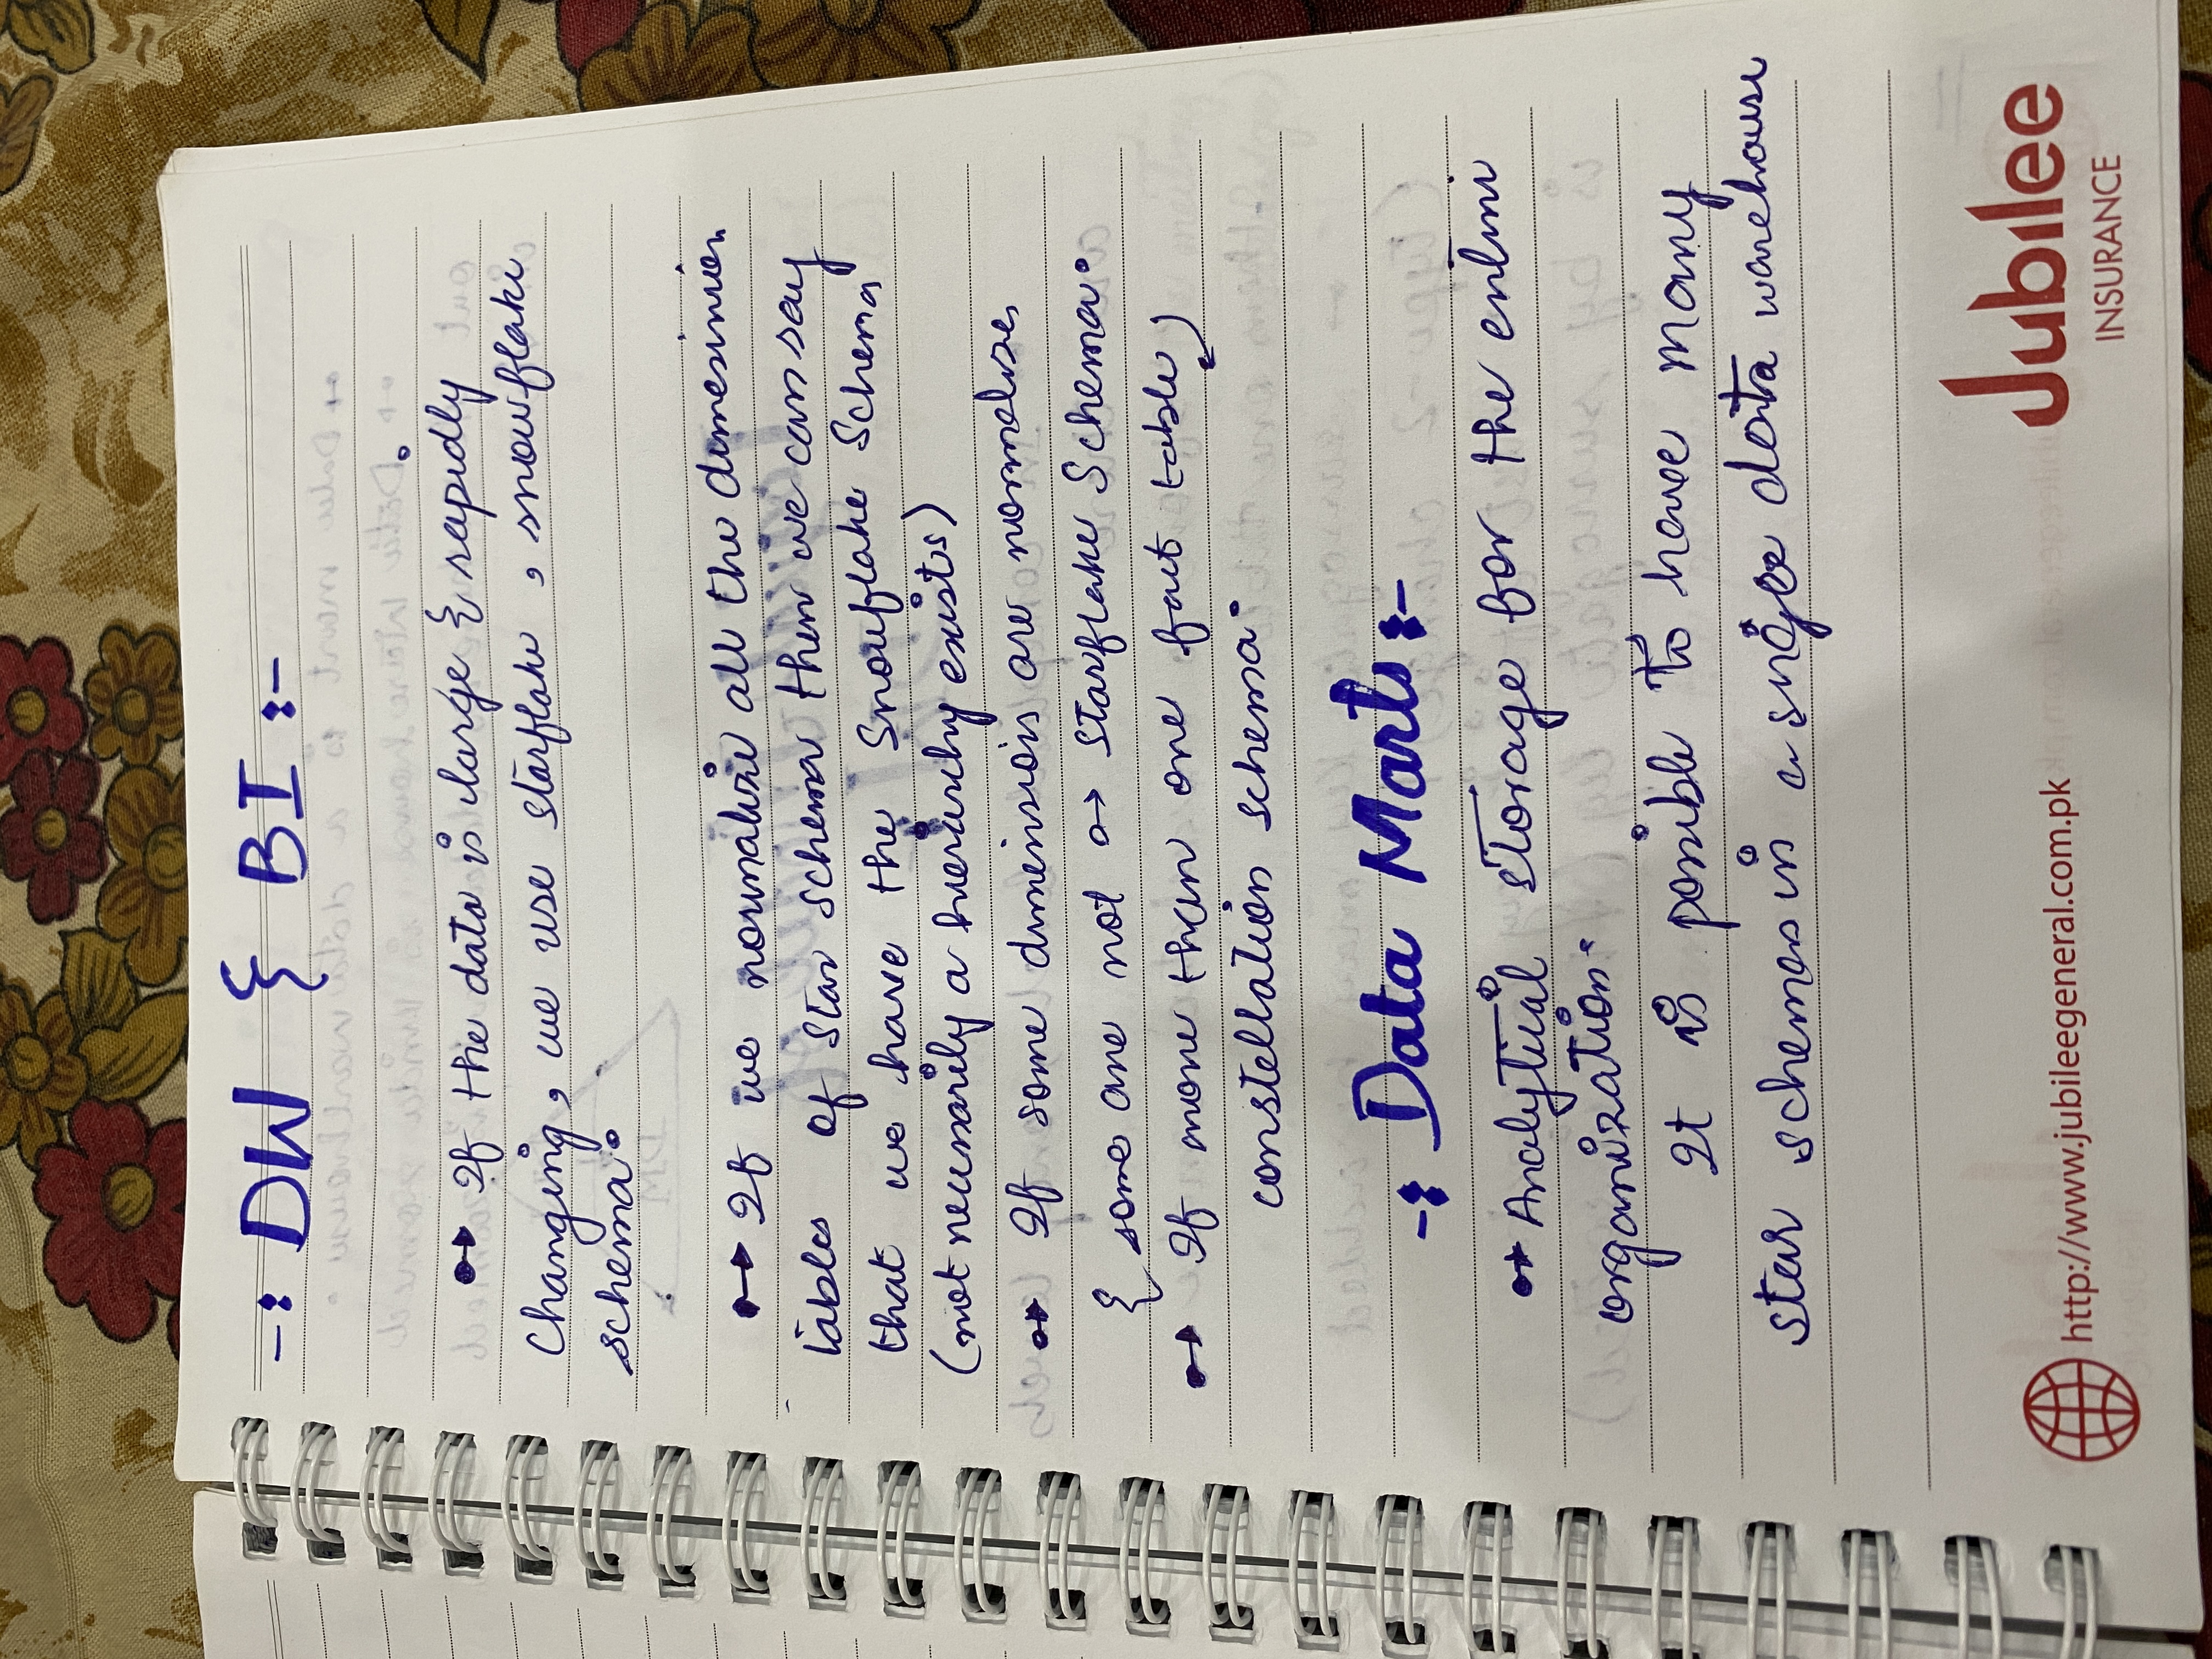 -: DW & BI :-
If the data is large & rapidly
Changing, we use starflake, snowflake
schema.
If we normalize all the dimesinion
tables of star schema then we can say
that we have the Snowflake Schema
(not necessarily a hierarchy exists)
If some dimensiois are normalizes
& some are not → Starflake Schema.
If more than one fact table
constellation schema.
-: Data Marts :-
Analytical storage for the entire
organization.
It is possible to have many
star schemas in a single data warehouse
http://www.jubileegeneral.com.pk
Jubilee
INSURANCE